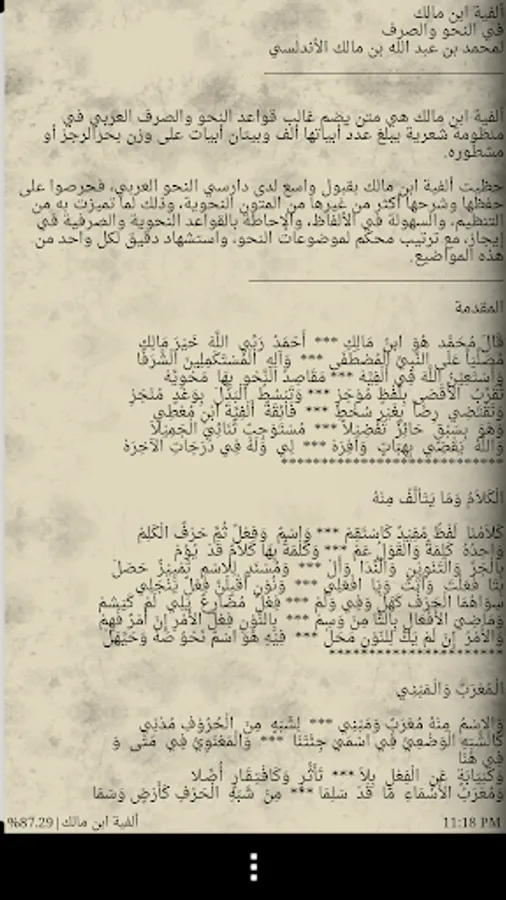 ألفية ابن مالك
في النحو والصرف
لمحمد بن عبد الله بن مالك الأندلسي
ألفية ابن مالك هي متن يضم غالب قواعد النحو والصرف العربي في
منظومة شعرية يبلغ عدد أبياتها ألف وبيتان أبيات على وزن بحرالرجز أو
مشطوره.
حظيت ألفية ابن مالك بقبول واسع لدى دارسي النحو العربي، فحرصوا على
حفظها وشرحها أكثر من غيرها من المتون النحوية، وذلك لما تميزت به من
التنظيم، والسهولة في الألفاظ، والإحاطة بالقواعد النحوية والصرفية في
إيجاز، مع ترتيب محكم لموضوعات النحو، واستشهاد دقيق لكل واحد من
هذه المواضيع.
المقدمة
قَالَ مُحَمَّد هُوَ ابنُ مَالِكِ *** أَحْمَدُ رَبِّي اللَّهَ خَيْرَ مَالِكِ
مُصَلِّيَاً عَلَى النَّبِيِّ الْمُصْطَفَى *** وَآلِهِ المُسْتَكْمِلِينَ الْشَّرَفَا
وَأَسْتَعِيْنُ اللَّهَ فِي أَلْفِيَّهْ *** مَقَاصِدُ النَّحْوِ بِهَا مَحْوِيَّهْ
تُقَرِّبُ الأَقْصَى بِلَفْظٍ مُوْجَزِ *** وَتَبْسُطُ الْبَذْلَ بِوَعْدٍ مُنْجَزِ
وَتَقْتَضِي رِضَاً بِغَيْرِ سُخْطِ *** فَائِقَةً أَلْفِيَّةَ ابْنِ مُعْطِي
وَهْوَ بِسَبْقٍ حَائِزٌ تَفْضِيْلاً *** مُسْتَوْجِبٌ ثَنَائِيَ الْجَمِيْلاَ
وَاللَّهُ يَقْضِي بِهِبَاتٍ وَافِرَهْ *** لِي وَلَهُ فِي دَرَجَاتِ الآخِرَهْ
**************************
الْكَلاَمُ وَمَا يَتَألَّفُ مِنْهُ
كَلاَمُنَا لَفْظٌ مُفِيْدٌ كَاسْتَقِمْ *** وَاسْمٌ وَفِعْلٌ ثُمَّ حَرْفٌ الْكَلِمْ
وَاحِدُهُ كَلِمَةٌ وَالْقَوْلُ عَمْ *** وَكَلْمَةٌ بِهَا كَلاَمٌ قَدْ يُؤَمْ
بِالْجَرِّ وَالْتَّنْوِيْنِ وَالْنِّدَا وَأَلْ *** وَمُسْنَدٍ لِلاسْمِ تَمْيِيْزٌ حَصَلْ
بِتَا فَعَلْتَ وَأَتَتْ وَيَا افْعَلِي *** وَنُوْنِ أَقْبِلَنَّ فِعْلٌ يَنْجَلِي
سِوَاهُمَا الْحَرْفُ كَهَلْ وَفِي وَلَمْ *** فِعْلٌ مُضَارِعٌ يَلِي لَمْ كَيَشَمْ
وَمَاضِيَ الأَفْعَالِ بِالتَّا مِزْ وَسِمْ *** بِالنُّوْنِ فِعْلَ الأَمْرِ إِنْ أَمْرٌ فُهِمْ
وَالأَمْرُ إِنْ لَمْ يَكُ لِلنُّوْنِ مَحَلْ *** فِيْهِ هُوَ اسْمٌ نَحْوُ صَهْ وَحَيَّهَلْ
********************
الْمُعْرَبُ وَالْمَبْنِي
وَالاِسْمُ مِنْهُ مُعْرَبٌ وَمَبْنِي *** لِشَبَهٍ مِنَ الْحُرُوْفِ مُدْنِي
كَالْشَّبَهِ الْوَضْعِيِّ فِي اسْمَيْ جِئْتَنَا *** وَالْمَعْنَوِيِّ فِي مَتَى وَ
فِي هُنَا
وَكَنِيَابَةٍ عَنِ الْفِعْلِ بِلاَ *** تَأَثُّرٍ وَكَافْتِقَارٍ أُصِّلا
وَمُعْرَبُ الأَسْمَاءِ مَا قَدْ سَلِمَا *** مِنْ شَبَهِ الْحَرْفِ كَأَرْضٍ وَسَمَا
11:18 PM ألفية ابن مالك|87.29%